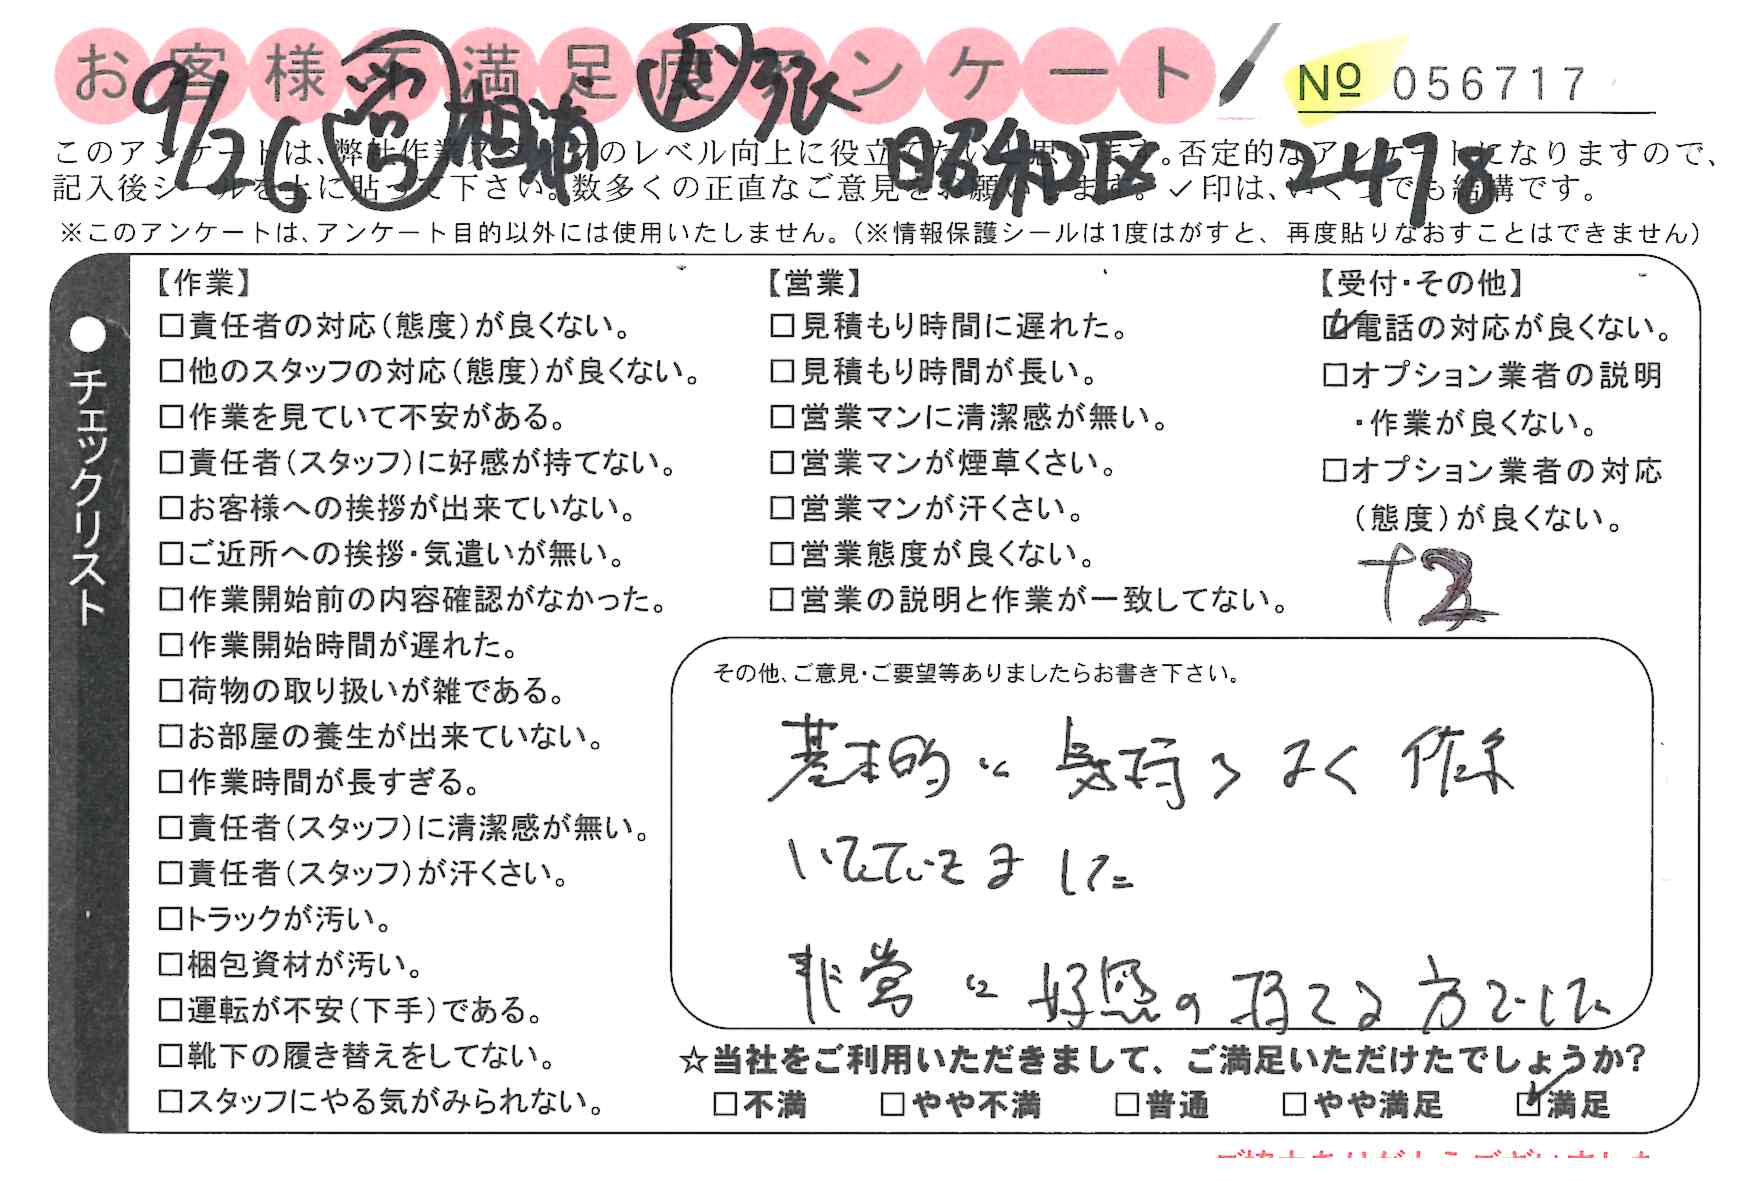 お客様不満足度アンケート
№ 056717
9/26 営 相浦 引張 昭和区 2478
このアンケートは、弊社作業スタッフのレベル向上に役立てたいと思います。否定的なアンケートになりますので、
記入後シールを上に貼って下さい。数多くの正直なご意見をお願いします。✓印は、いくつでも結構です。
※このアンケートは、アンケート目的以外には使用いたしません。(※情報保護シールは1度はがすと、再度貼りなおすことはできません)
●チェックリスト
【作業】
□責任者の対応(態度)が良くない。
□他のスタッフの対応(態度)が良くない。
□作業を見ていて不安がある。
□責任者(スタッフ)に好感が持てない。
□お客様への挨拶が出来ていない。
□ご近所への挨拶・気遣いが無い。
□作業開始前の内容確認がなかった。
□作業開始時間が遅れた。
□荷物の取り扱いが雑である。
□お部屋の養生が出来ていない。
□作業時間が長すぎる。
□責任者(スタッフ)に清潔感が無い。
□責任者(スタッフ)が汗くさい。
□トラックが汚い。
□梱包資材が汚い。
□運転が不安(下手)である。
□靴下の履き替えをしてない。
□スタッフにやる気がみられない。
【営業】
□見積もり時間に遅れた。
□見積もり時間が長い。
□営業マンに清潔感が無い。
□営業マンが煙草くさい。
□営業マンが汗くさい。
□営業態度が良くない。
□営業の説明と作業が一致してない。
【受付・その他】
☑電話の対応が良くない。
□オプション業者の説明
・作業が良くない。
□オプション業者の対応
(態度)が良くない。
+2
その他、ご意見・ご要望等ありましたらお書き下さい。
基本的に気持ちよく作業
いただきました
非常に好感の持てる方でした
☆当社をご利用いただきまして、ご満足いただけたでしょうか?
□不満 □やや不満 □普通 □やや満足 ☑満足